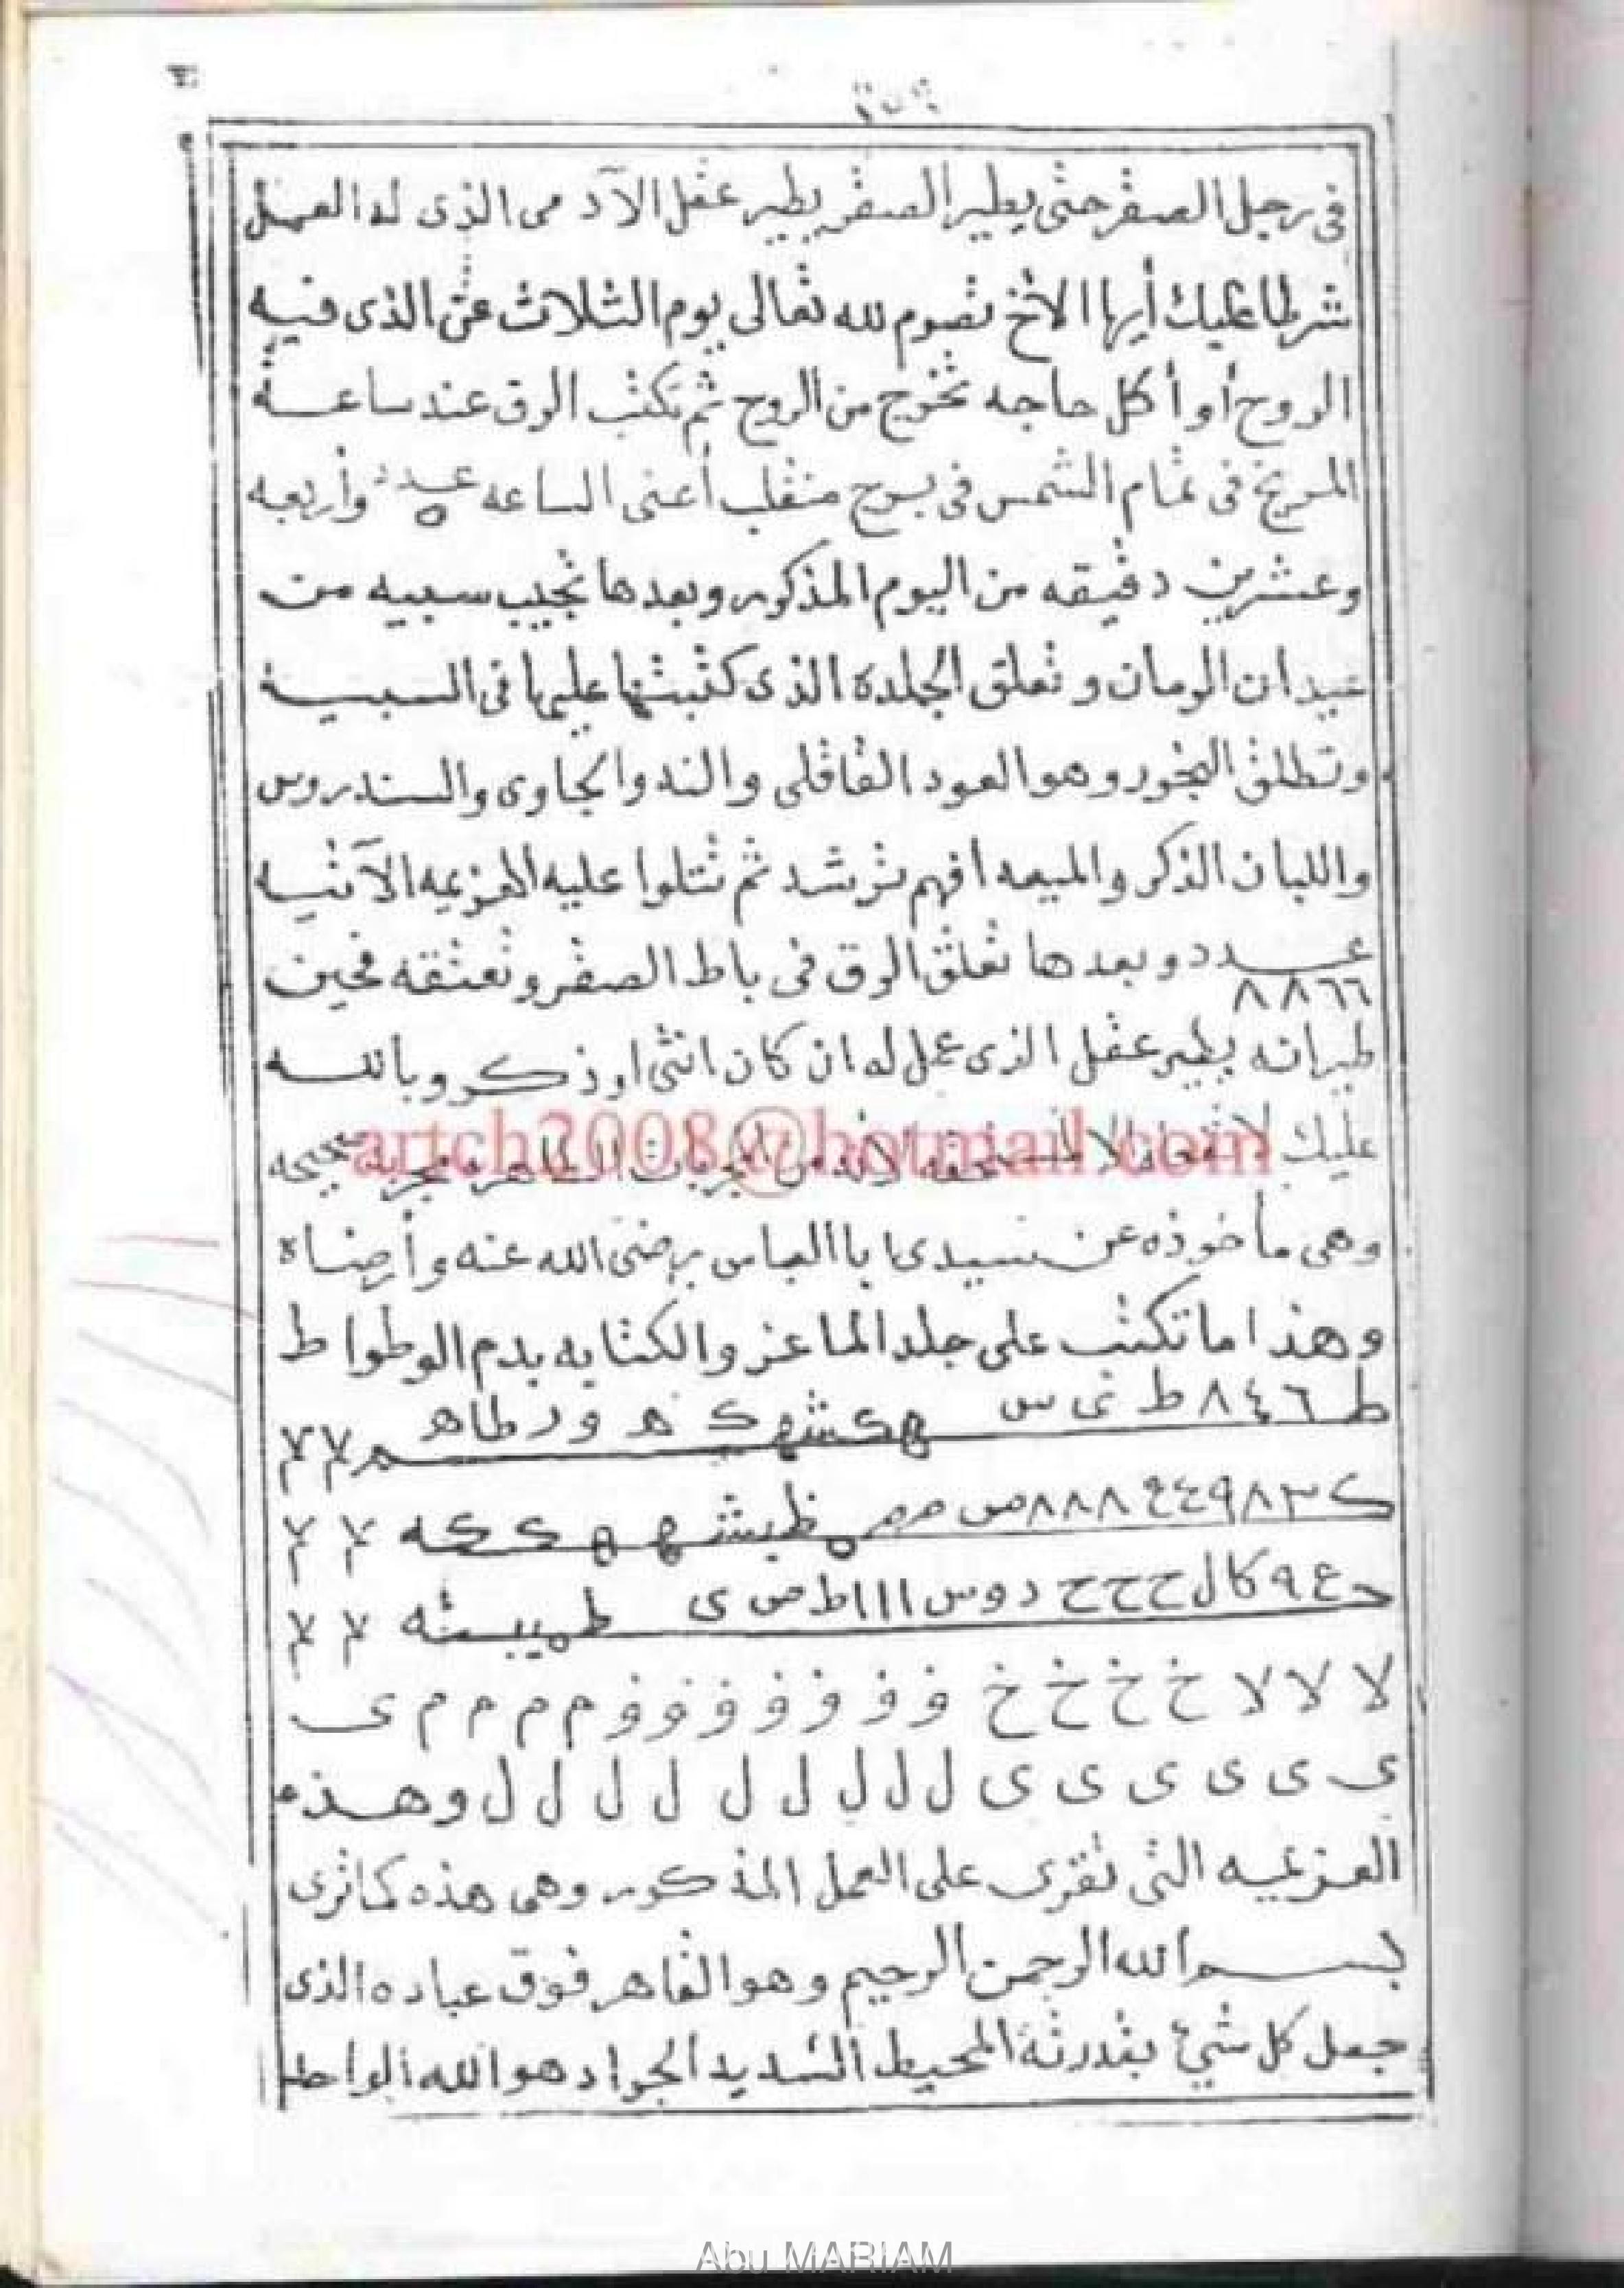 في رجل الصقر حتى يطير الصقر يطير عقل الآدمى الذى له العمل
شرطا عليك أيها الأخ تصوم لله تعالى يوم الثلاث عن الذى فيه
الروح أو أكل حاجه تخرج من الروح ثم تكتب الرق عند ساعة
المريخ فى تمام الشمس فى برج منقلب أعنى الساعه عدد ٥ وأربعه
وعشرين دقيقه من اليوم المذكور وبعدها تجيب سيبيه من
عيدان الرمان وتعلق الجلده الذى كتبتها عليها فى السيبه
وتطلق البخور وهو العود القاقلى والند والجاوى والسندروس
واللبان الذكر والميعه افهم ترشد ثم تتلوا عليه العزيمه الآتيه
عدد وبعدها تعلق الرق فى باط الصقر وتعتقه فحين
٨٨٦٦
طيرانه يطير عقل الذى عمل له ان كان انثى او ذكر وبالله
عليك لا تفعله الا لمستحقه لأنه من المجربات الظاهره مجربه صحيحه
artch2008@hotmail.com
وهى مأخوذه عن سيدى ابا العباس رضى الله عنه وأرضاه
وهذا ما تكتب على جلد الماعز والكتابه بدم الوطواط
ط ٨٤٦ ط
ك ٨٨٨
ح ع ٩ كا ل ح ح ح ح د و س ااا ط ص ى
لا لا لا لا خ خ خ خ و و و و و و و و م م م م ى
ى ى ى ى ى ى ى ل ل ل ل ل ل ل ل ل وهذه
العزيمه التى تقرى على العمل المذكور وهى هذه كما ترى
بسم الله الرحمن الرحيم وهو القاهر فوق عباده الذى
جعل كل شيئ بقدرته المحيط الشديد الجواد هو الله الواحد
Abu MARIAM